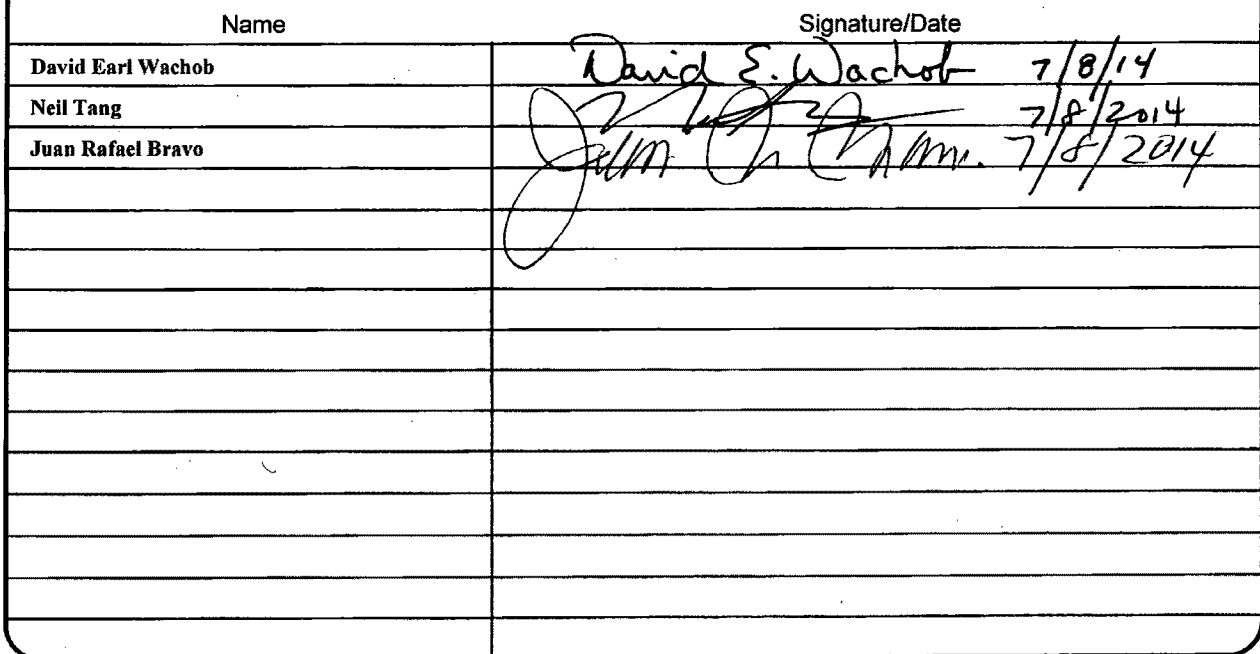 Name Signature/Date
David Earl Wachob David E. Wachob 7/8/14
Neil Tang 7/8/2014
Juan Rafael Bravo Juan 7/8/2014